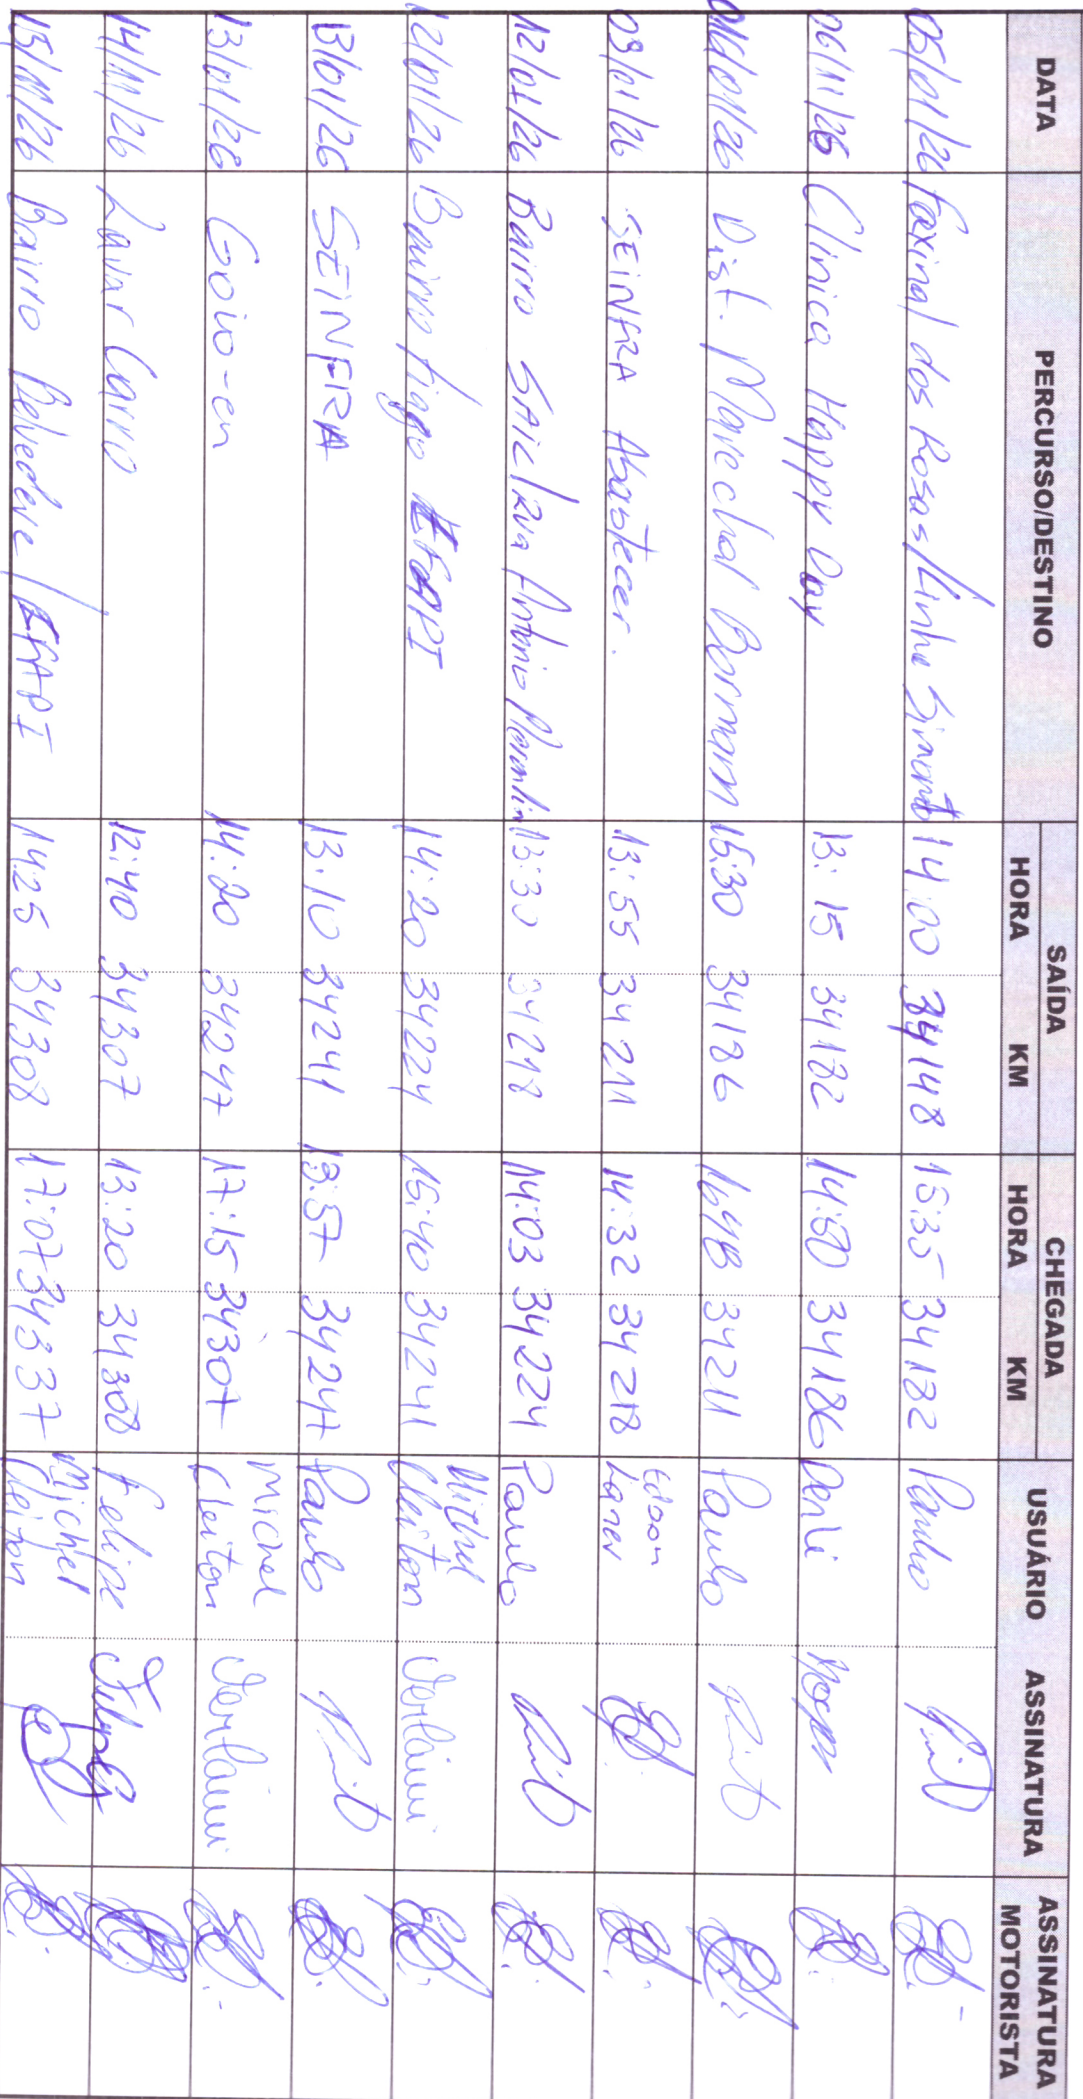 DATA PERCURSO/DESTINO SAÍDA CHEGADA USUÁRIO ASSINATURA ASSINATURA MOTORISTA
HORA KM HORA KM
05/01/26 Faxinal dos Rosas/Linha Simonato 14:00 34148 15:35 34182 Paulo
06/11/26 Clinica Happy Day 13:15 34182 14:50 34186
01/26 Dist. Marechal Bormann 15:30 34186 16:48 34211 Paulo
09/01/26 SEINFRA Abastecer. 13:55 34211 14:32 34218 Edson
12/01/26 Bairro SAIC/Rua Antonio 13:30 34218 14:03 34224 Paulo
12/01/26 Bairro EFAPI 14:20 34224 15:40 34241 Michel Cleiton
13/01/26 SEINFRA 13:10 34241 13:57 34247 Paulo
13/01/26 Goio-en 14:20 34247 17:15 34307 Michel Cleiton
14/11/26 Lavar Carro 12:40 34307 13:20 34308 Felipe
15/11/26 Bairro Belvedere/EFAPI 14:25 34308 17:07 34337 Michel Cleiton